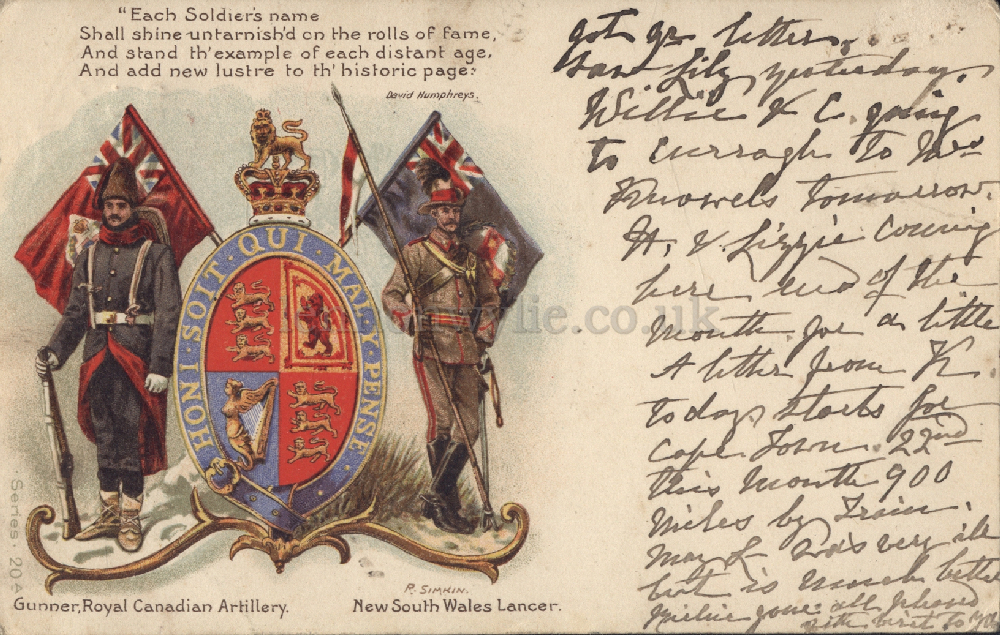 "Each Soldier's name
Shall shine untarnish'd on the rolls of fame,
And stand th' example of each distant age,
And add new lustre to th' historic page:
David Humphreys.
HONI·SOIT·QUI·MAL·Y·PENSE
R. SIMKIN.
Gunner, Royal Canadian Artillery.
New South Wales Lancer.
Series. 204
got yr letter.
Saw Lily yesterday.
Willie & C. going
to Curragh to Mrs
Knowels tomorrow.
H. & Lizzie coming
here end of the
month for a little
A letter from K.
today starts for
Cape Town. 22nd
this month 900
miles by Train.
was very ill
but is much better
gone all pleased
with visit to
wylie.co.uk